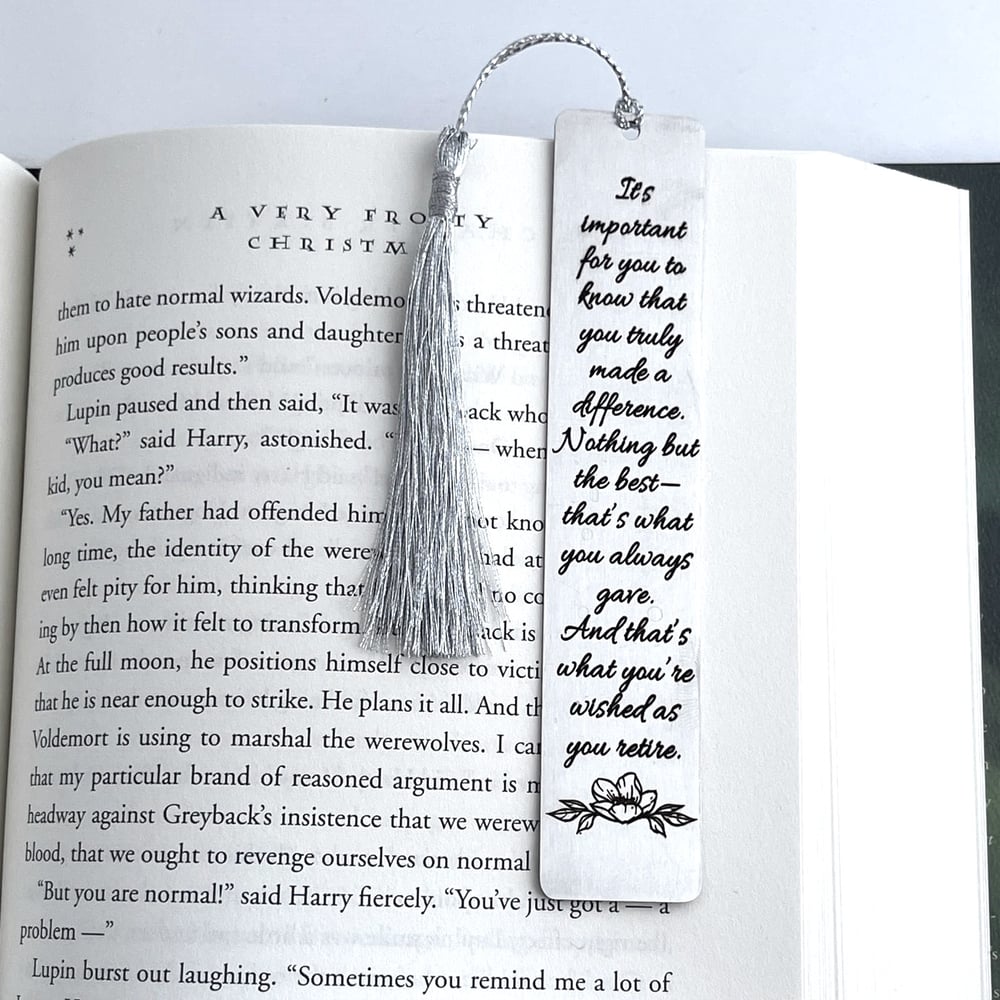 A VERY FRO TY
CHRISTM
them to hate normal wizards. Voldemo s threaten
him upon people's sons and daughter s a threat
produces good results."
Lupin paused and then said, "It was ack who
"What?" said Harry, astonished. " — when
kid, you mean?"
"Yes. My father had offended him ot kno
long time, the identity of the were had at
even felt pity for him, thinking that no co
ing by then how it felt to transform. ack is
At the full moon, he positions himself close to victi
that he is near enough to strike. He plans it all. And th
Voldemort is using to marshal the werewolves. I can
that my particular brand of reasoned argument is m
headway against Greyback's insistence that we werew
blood, that we ought to revenge ourselves on normal
"But you are normal!" said Harry fiercely. "You've just got a — a
problem —"
Lupin burst out laughing. "Sometimes you remind me a lot of
It's
important
for you to
know that
you truly
made a
difference.
Nothing but
the best—
that's what
you always
gave.
And that's
what you're
wished as
you retire.